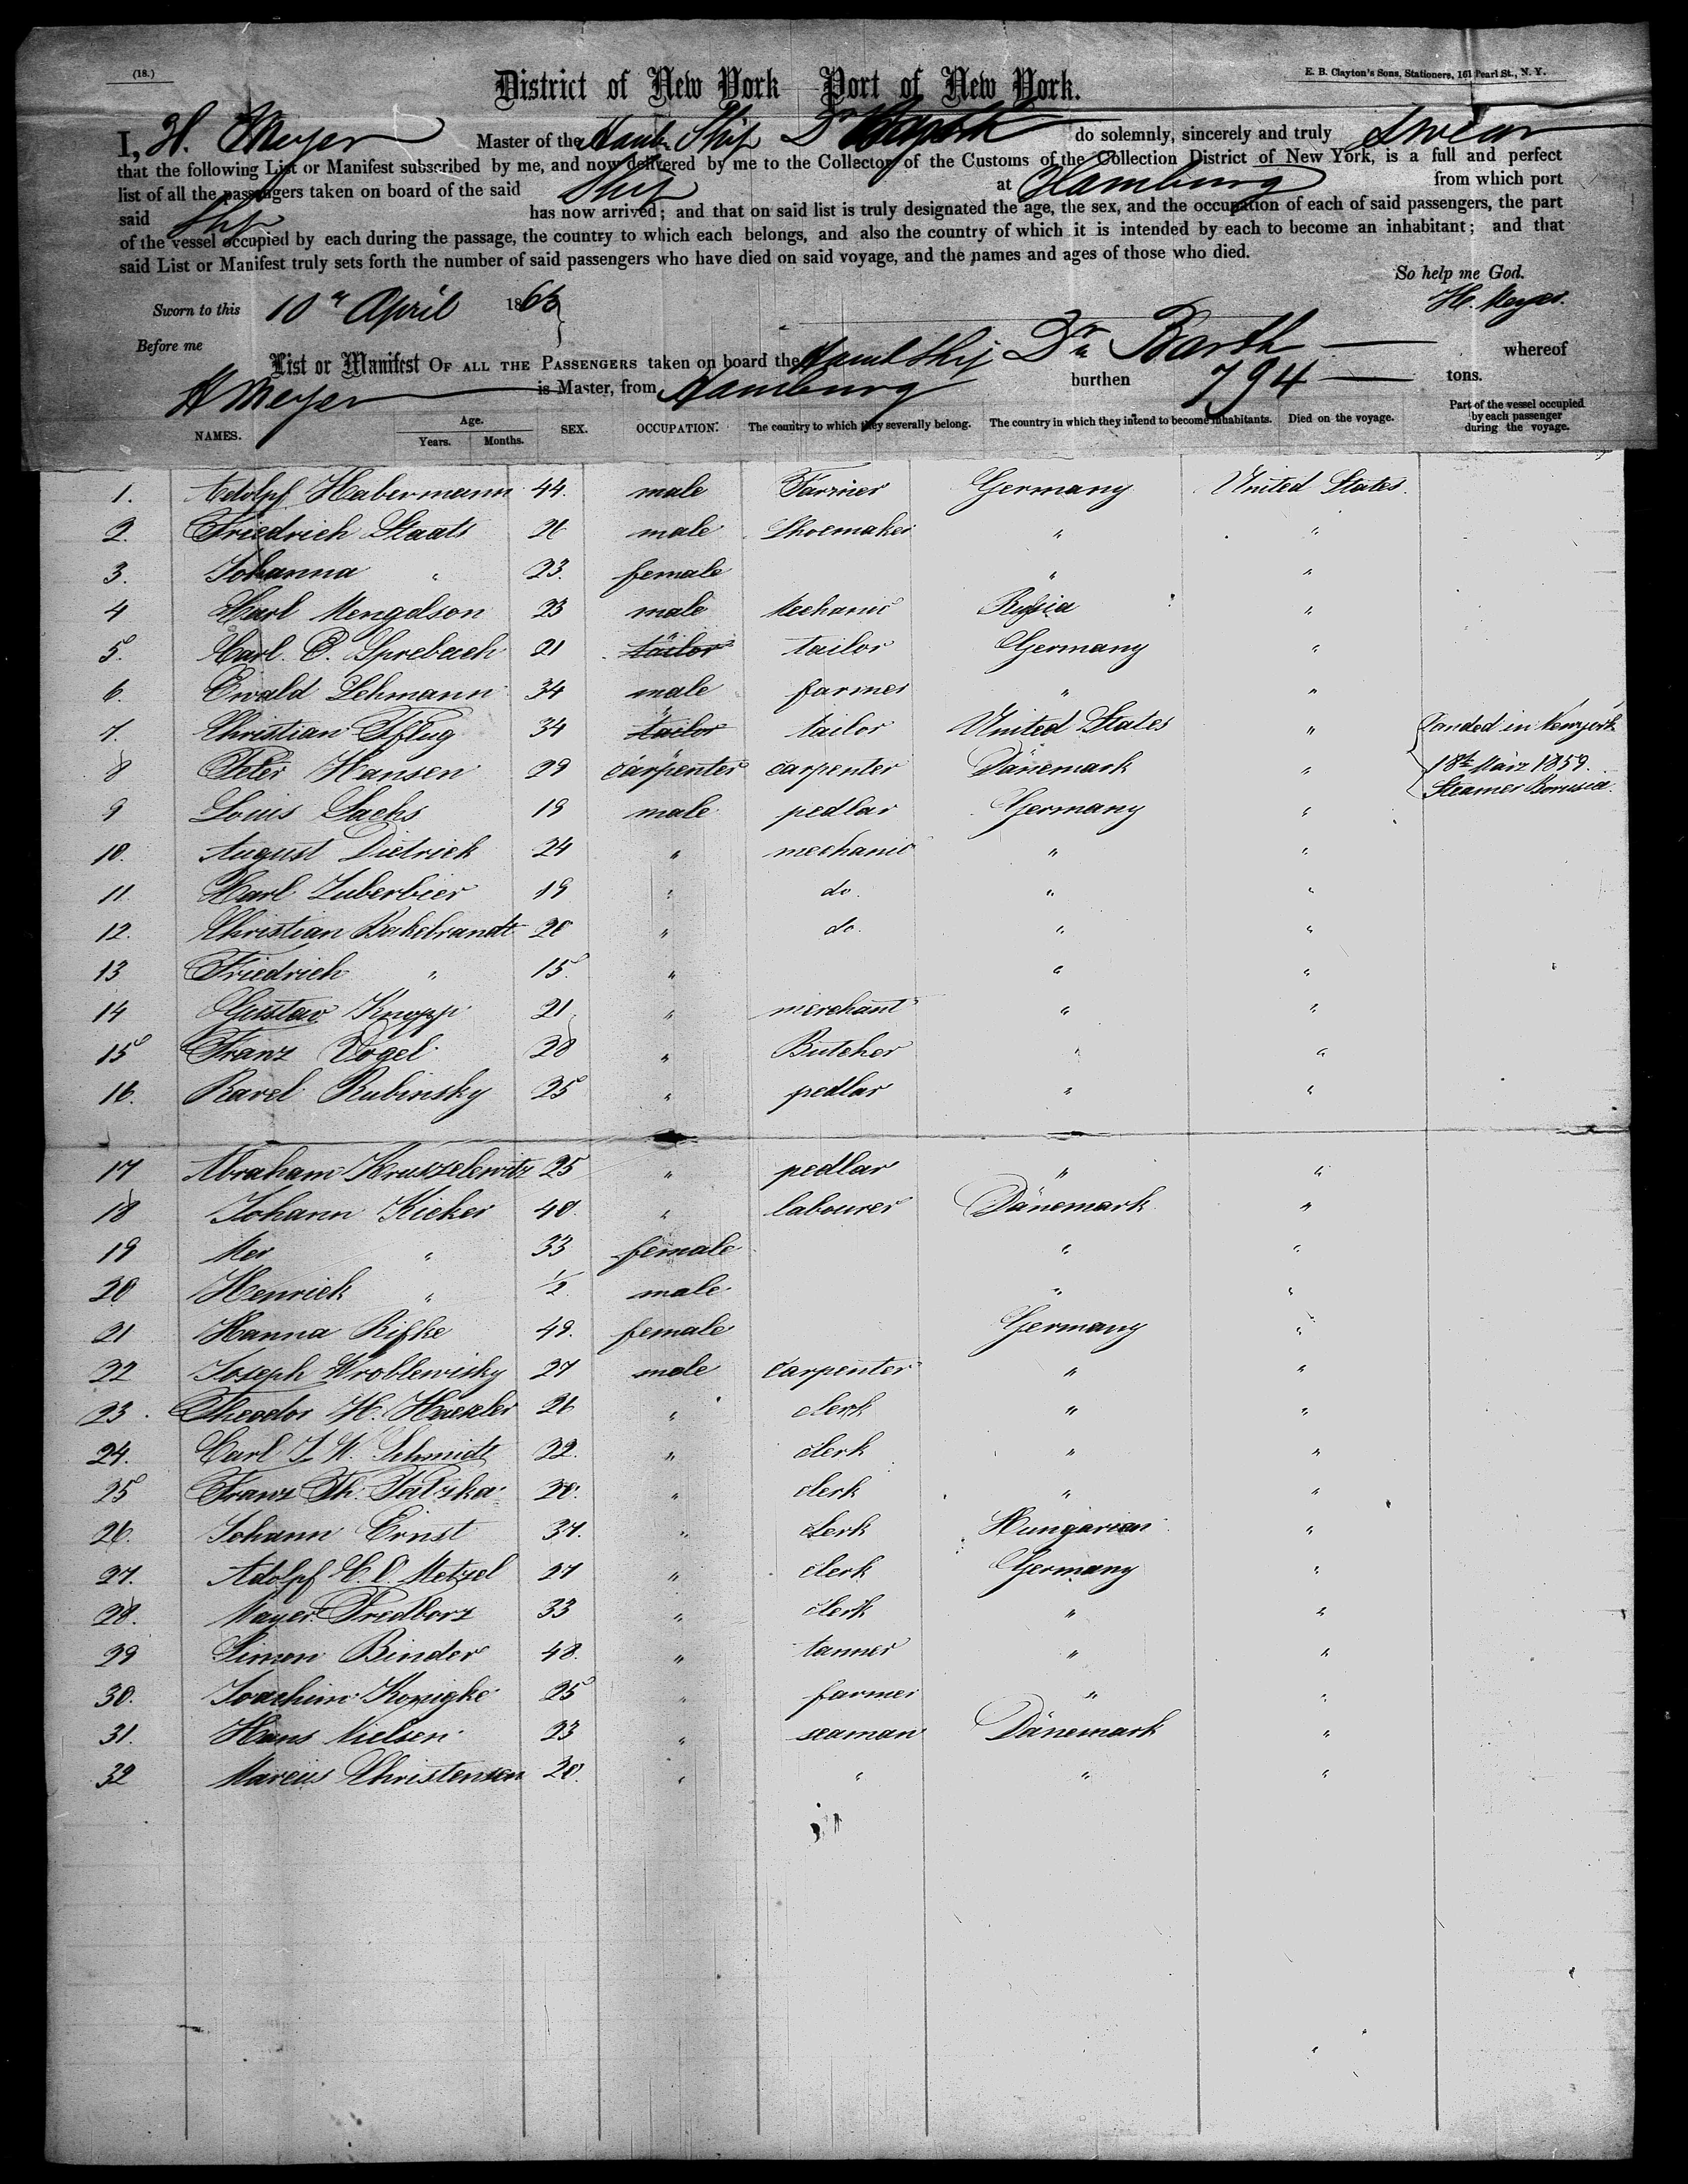 (18.)
E. B. Clayton's Sons, Stationers, 161 Pearl St., N. Y.
District of New York Port of New York.
I, H. Meyer Master of the Hamb. Ship Dr Barth do solemnly, sincerely and truly swear
that the following List or Manifest subscribed by me, and now delivered by me to the Collector of the Customs of the Collection District of New York, is a full and perfect
list of all the passengers taken on board of the said Ship at Hamburg from which port
said Ship has now arrived; and that on said list is truly designated the age, the sex, and the occupation of each of said passengers, the part
of the vessel occupied by each during the passage, the country to which each belongs, and also the country of which it is intended by each to become an inhabitant; and that
said List or Manifest truly sets forth the number of said passengers who have died on said voyage, and the names and ages of those who died.
So help me God.
Sworn to this 10th April 1863 H. Meyer.
Before me
List or Manifest OF ALL THE PASSENGERS taken on board the Hamb Ship Dr Barth whereof
H Meyer is Master, from Hamburg burthen 794 tons.
NAMES. Age. Years. Months. SEX. OCCUPATION. The country to which they severally belong. The country in which they intend to become inhabitants. Died on the voyage. Part of the vessel occupied by each passenger during the voyage.
1. Adolpf Habermann 44. male Farmer Germany United States.
2. Friedrich Staats 26 male Shoemaker " "
3. Johanna " 23. female " "
4 Karl Mengdson 23 male Mechanic Russia "
5. Carl. C. Sprebach 21 " tailor tailor Germany "
6. Ewald Lehmann 34 male farmer " "
7. Christian Pflug 34 " tailor tailor United States " Landed in Newyork
8 Peter Hansen 29 " carpenter carpenter Dänemark " 18th März 1859.
Steamer Borussia.
9 Louis Sachs 19 male pedlar Germany "
10. August Dietrich 24 " mechanic " "
11. Karl Zuberbier 19 " do. " "
12. Christian Bakebrandt 20 " do. " "
13 Friedrich " 15 " " "
14 Gustav Knopp 21 " merchant " "
15 Franz Vogel 28 " Butcher " "
16. Ravel Rubinsky 25 " pedlar " "
17 Abraham Kruszelewitz 25 " pedlar " "
18 Johann Kicker 40. " labourer Dänemark "
19 " 33 female " "
20 Henrick " 1/2 male " "
21 Hanna Rifke 49. female Germany "
22 Joseph Wroblewisky 27 male carpenter " "
23. Theodor H. Haexler 26 " clerk " "
24. Carl J. W. Schmidt 22. " clerk " "
25 Franz Th. 20. " clerk " "
26. Johann Ernst 37. " clerk Hungarian "
27. Adolpf C. C. Metzel 27 " clerk Germany "
28. Mayer Fredborz 33 " clerk " "
29 Simon Binder 48. " tanner " "
30. Joachim Kopigke 25 " farmer " "
31. Hans Nielsen 23 " seaman Dänemark "
32 Marcus Christensen 20. " " " "